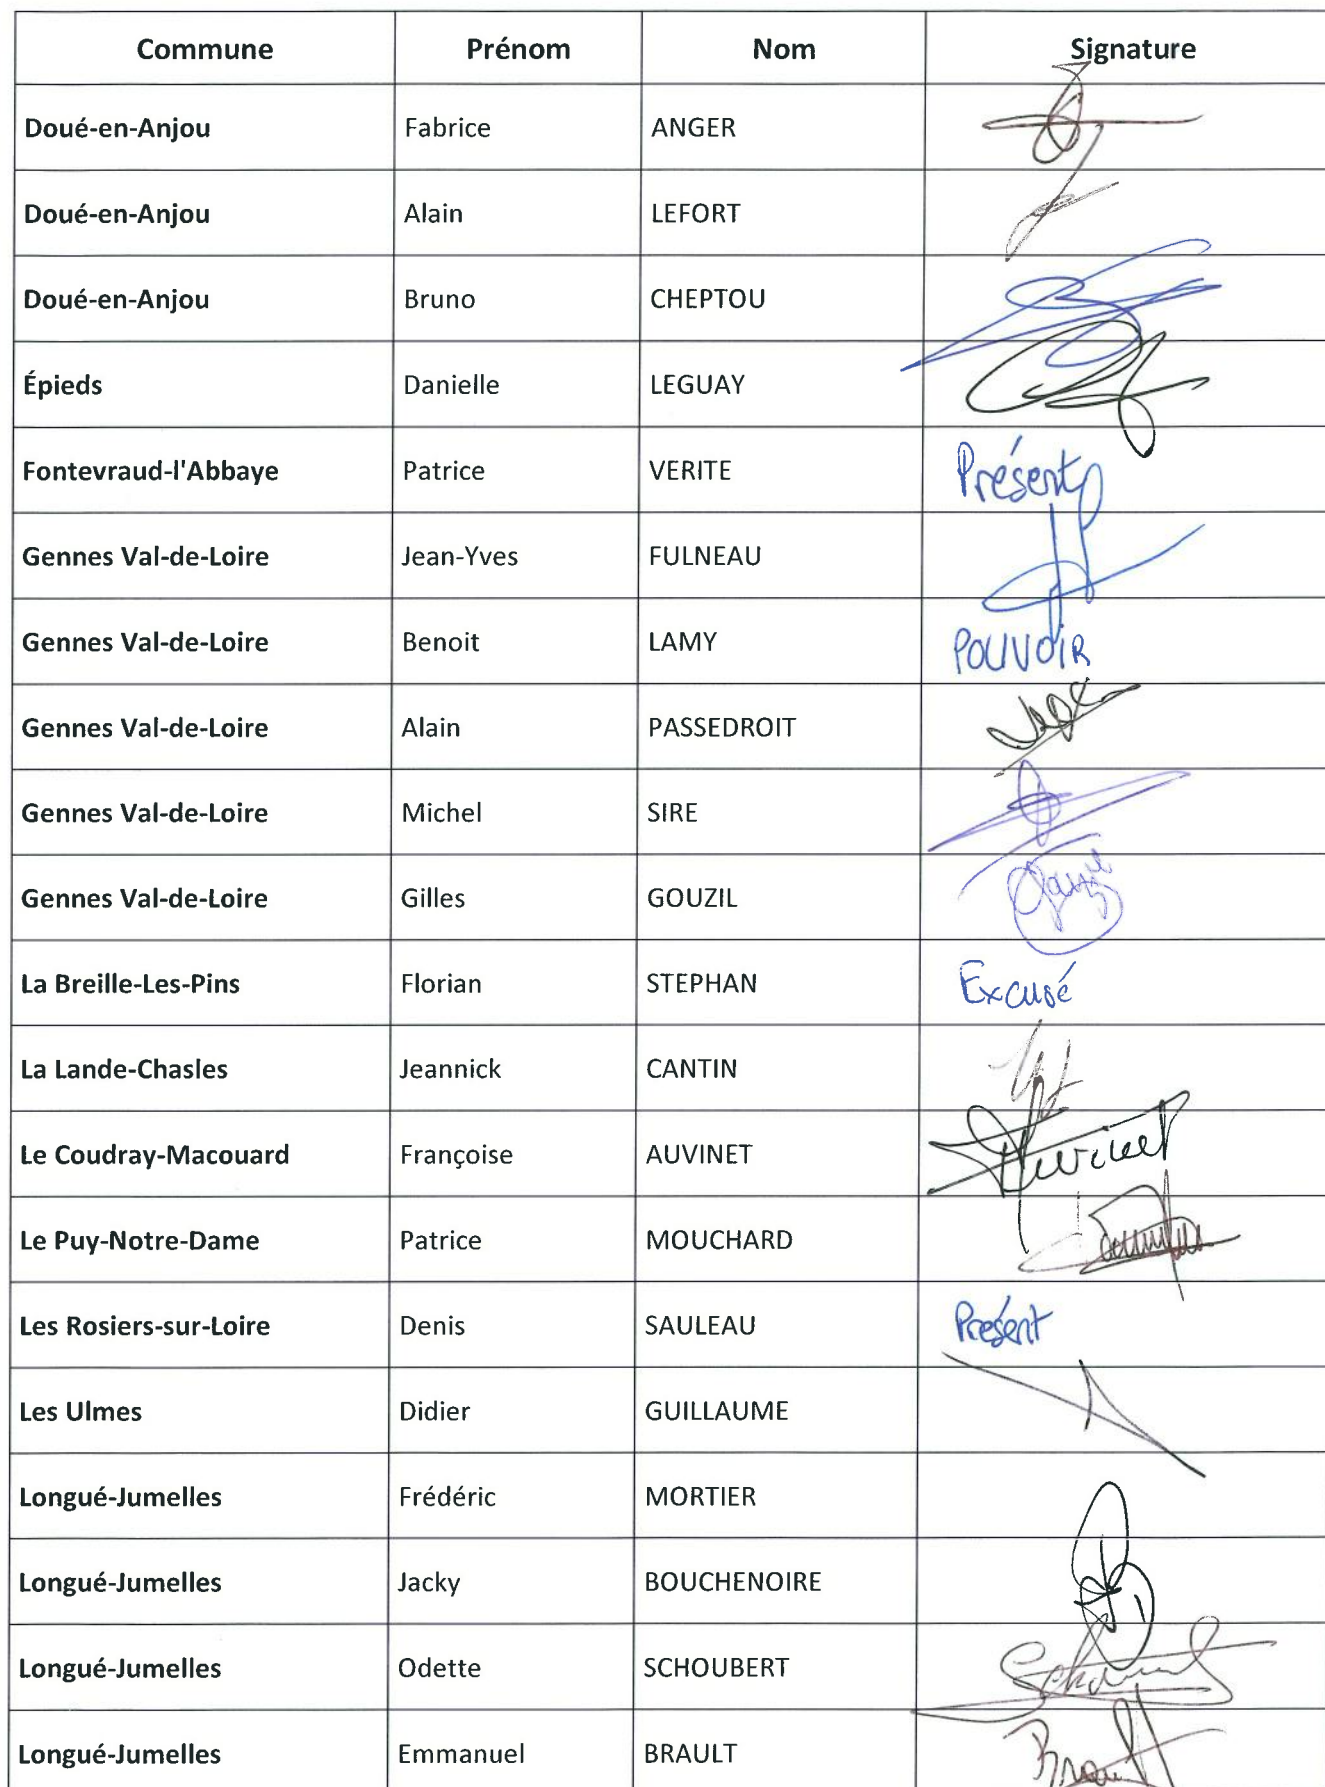 Commune Prénom Nom Signature
Doué-en-Anjou Fabrice ANGER
Doué-en-Anjou Alain LEFORT
Doué-en-Anjou Bruno CHEPTOU
Épieds Danielle LEGUAY
Fontevraud-l'Abbaye Patrice VERITE Présent
Gennes Val-de-Loire Jean-Yves FULNEAU
Gennes Val-de-Loire Benoit LAMY POUVOIR
Gennes Val-de-Loire Alain PASSEDROIT
Gennes Val-de-Loire Michel SIRE
Gennes Val-de-Loire Gilles GOUZIL
La Breille-Les-Pins Florian STEPHAN Excusé
La Lande-Chasles Jeannick CANTIN
Le Coudray-Macouard Françoise AUVINET Auvinet
Le Puy-Notre-Dame Patrice MOUCHARD
Les Rosiers-sur-Loire Denis SAULEAU Présent
Les Ulmes Didier GUILLAUME
Longué-Jumelles Frédéric MORTIER
Longué-Jumelles Jacky BOUCHENOIRE
Longué-Jumelles Odette SCHOUBERT
Longué-Jumelles Emmanuel BRAULT Brault